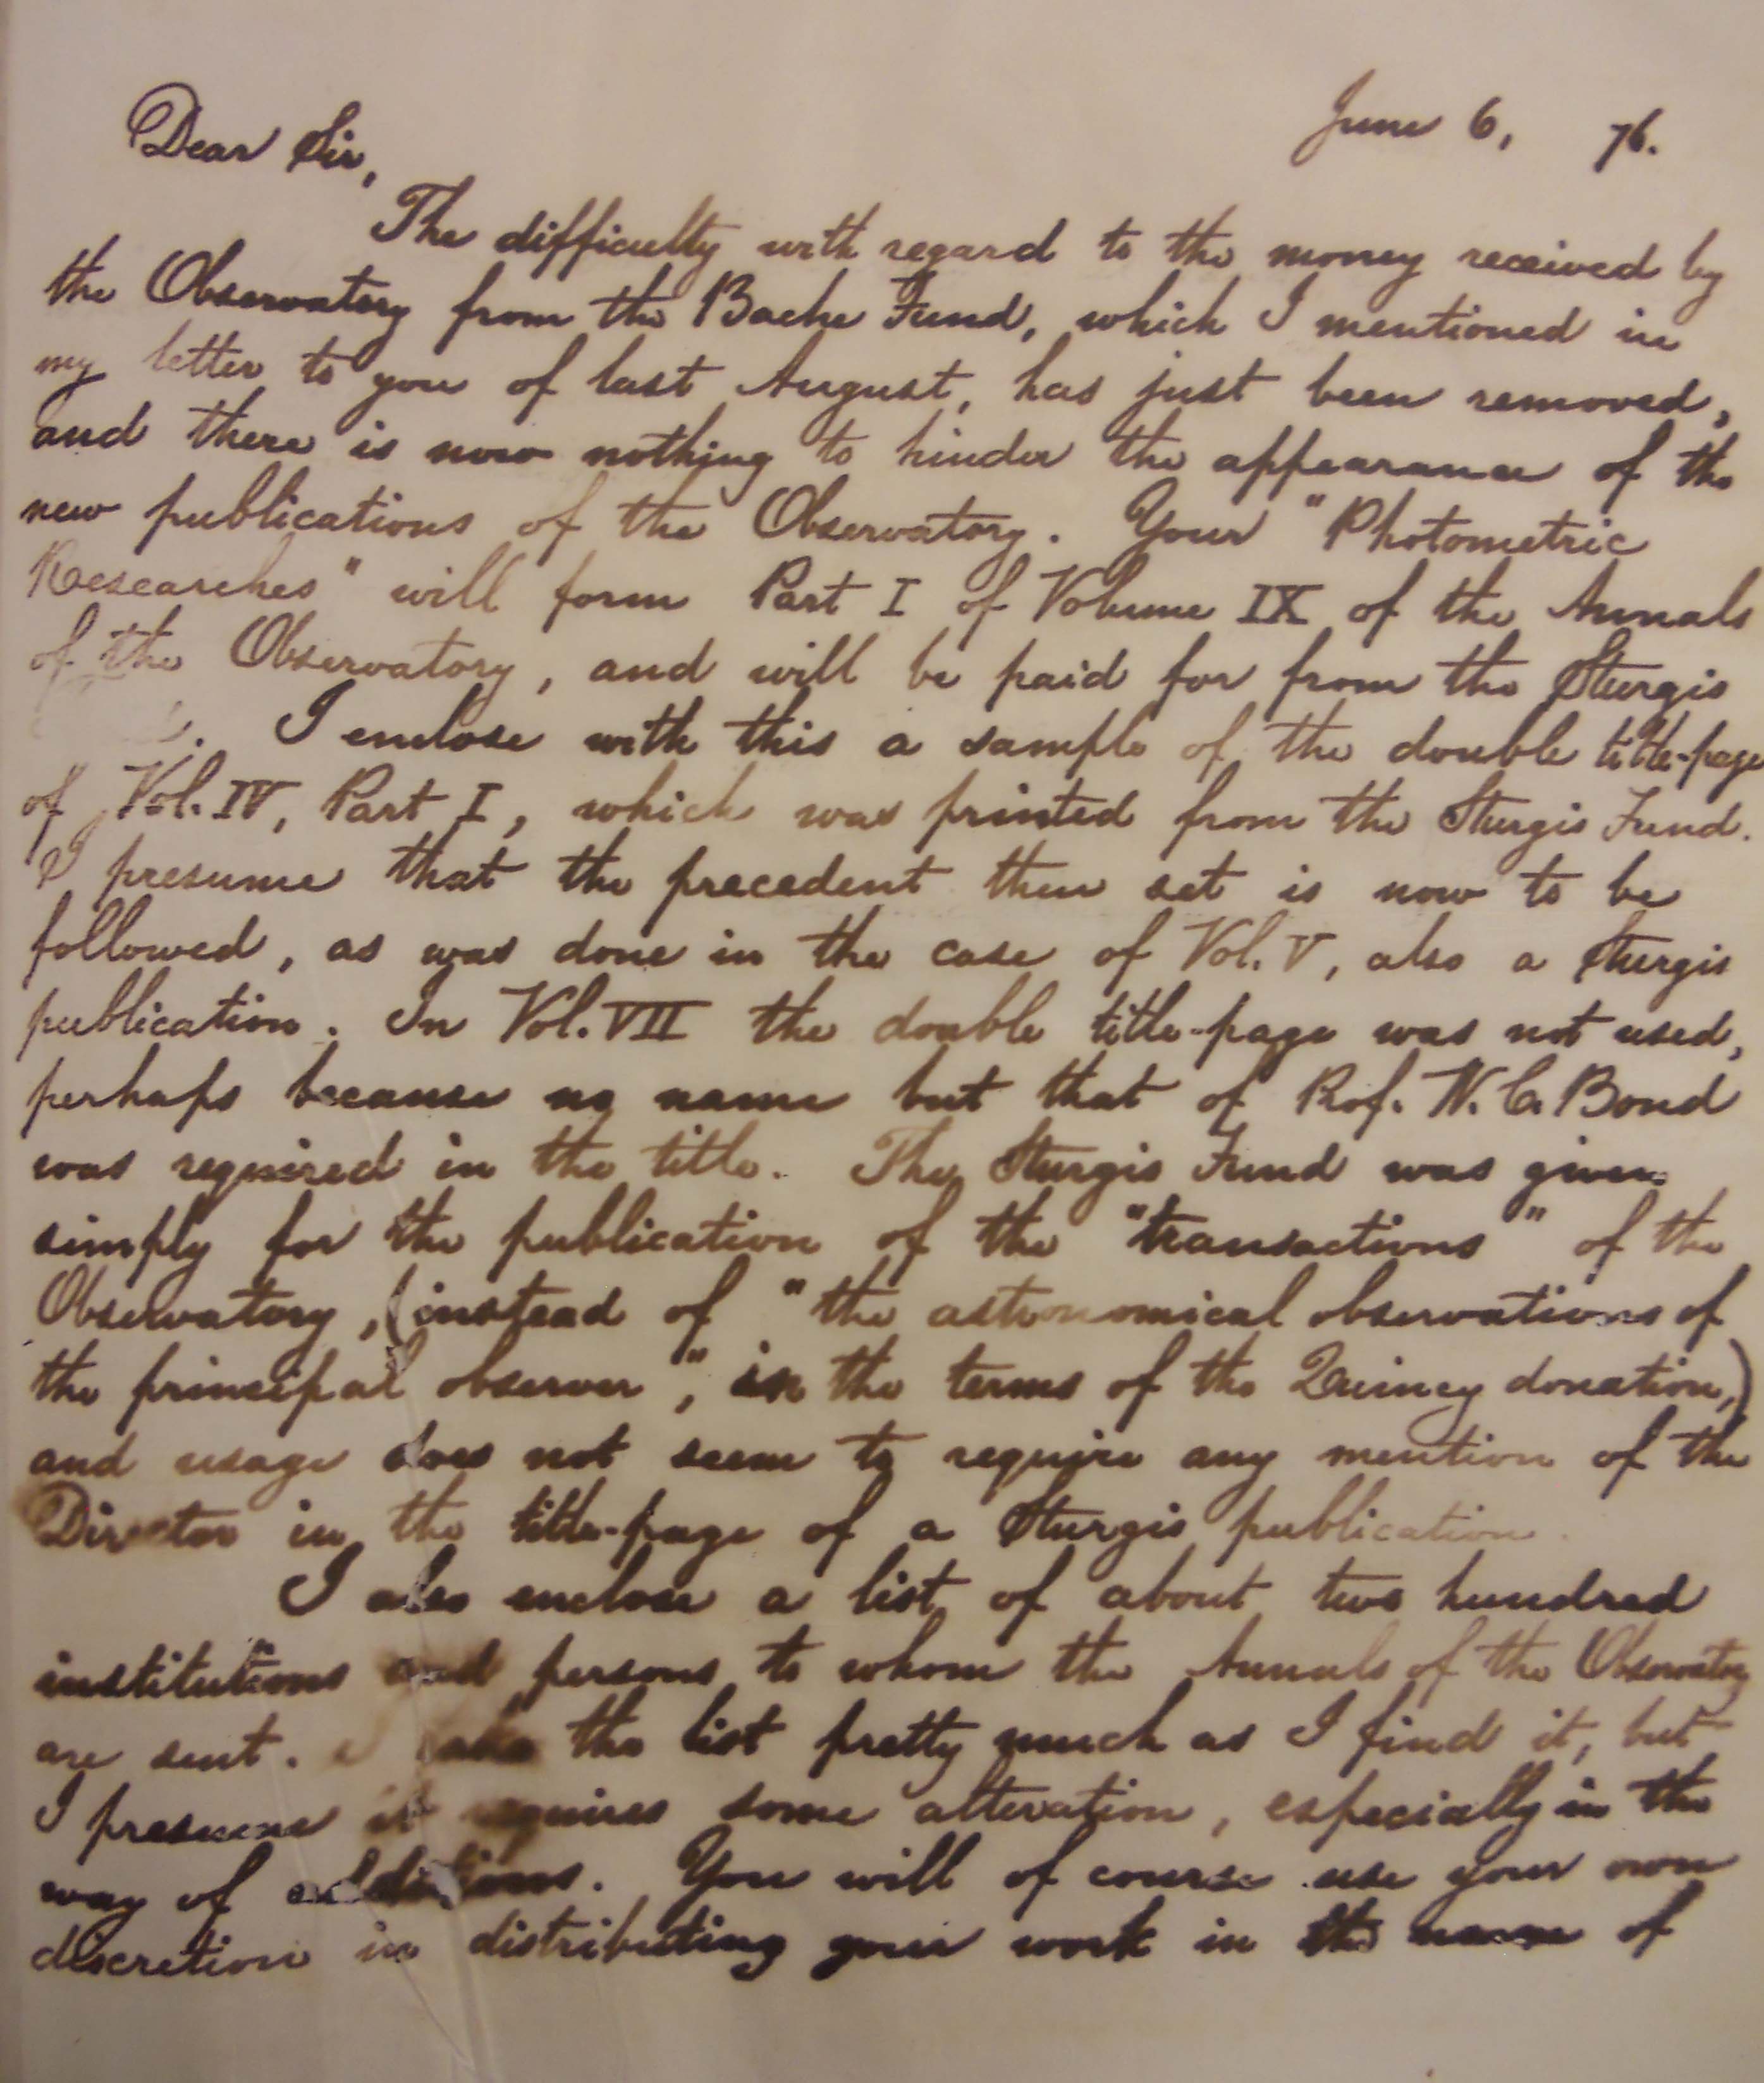 June 6, 76.
Dear Sir,
The difficulty with regard to the money received by
the Observatory from the Bache Fund, which I mentioned in
my letter to you of last August, has just been removed,
and there is now nothing to hinder the appearance of the
new publications of the Observatory. Your "Photometric
Researches" will form Part I of Volume IX of the Annals
of the Observatory, and will be paid for from the Sturgis
I enclose with this a sample of the double title-page
of Vol. IV, Part I, which was printed from the Sturgis Fund.
I presume that the precedent then set is now to be
followed, as was done in the case of Vol. V, also a Sturgis
publication. In Vol. VII the double title-page was not used,
perhaps because no name but that of Prof. W. C. Bond
was required in the title. The Sturgis Fund was given
simply for the publication of the "transactions" of the
Observatory, (instead of "the astronomical observations of
the principal observer", in the terms of the Quincy donation,)
and usage does not seem to require any mention of the
Director in the title-page of a Sturgis publication.
I also enclose a list of about two hundred
institutions and persons to whom the Annals of the Observatory
are sent. the list pretty much as I find it, but
I presume it requires some alteration, especially in the
way of additions. You will of course use your own
discretion in distributing your work in the name of